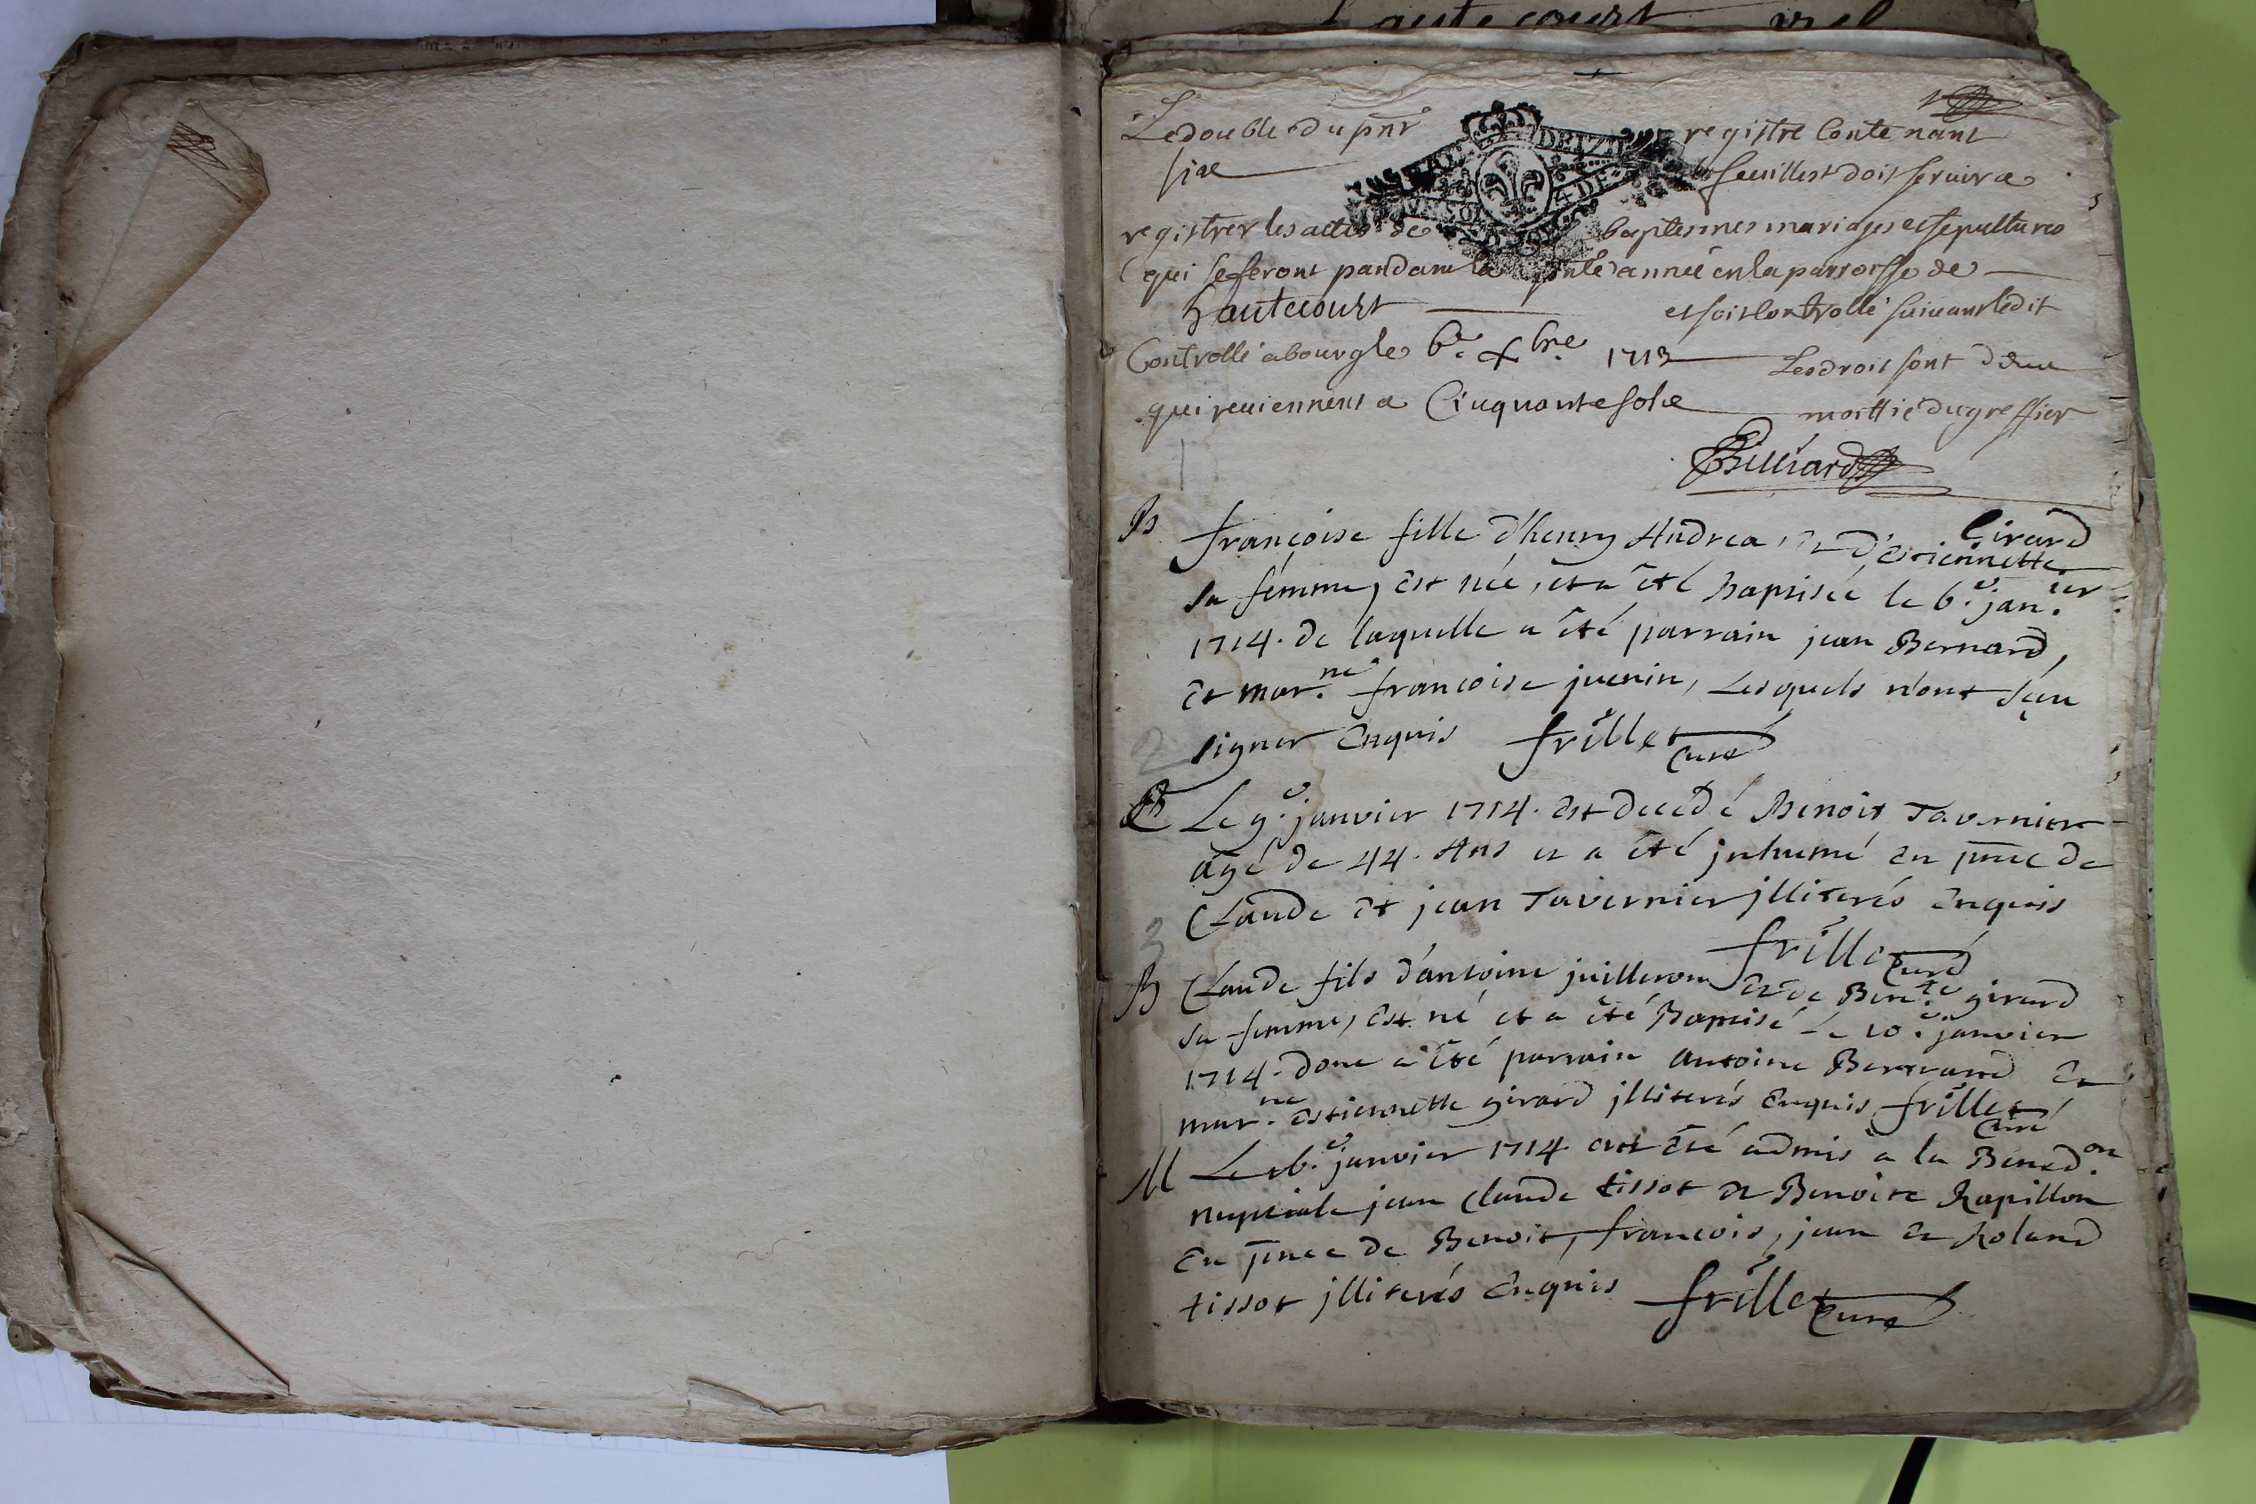 hautecourt
Le double du pnt registre Contenant
six feuillest doit servir a
registrer les actes de baptesmes mariages et sepultures
qui se feront pandant la pnte année en la parroisse de
hautecourt et soit Controllé suivant ledit
Controllé a bourg le 6e. xbre. 1713 Les droit sont deux
qui reviennent a Cinquante sols moittié du greffier
Billiard
1
B françoise fille d'henry Andrea, et d'estiennette Girard
sa femme, est née, et a êté Baptisée le 6e. jan.ier
1714. de laquelle a êté parrain jean Bernard,
et mar.ne françoise juenin, Lesquels n'ont sçeu
signer enquis frillet Curé
2
Le 9e. janvier 1714. est decedé Benoit Tavernier
agé de 44. Ans et a êté jnhumé en pnce de
Claude et jean Tavernier jlliterés enquis
frillet Curé
3
B Claude fils d'antoine juilleron et de Ben.te girard
sa femme, est né et a êté Baptisé Le 10e. janvier
1714. dont a êté parrain Antoine Bertrand et
mar.ne estiennette girard jlliterés enquis frillet Curé
M Le janvier 1714 ont êté admis a la Bened.on
nuptiale jean Claude tissot et Benoite Rapillon
en pnce de Benoit, françois, jean et Roland
tissot jlliterés enquis frillet Curé